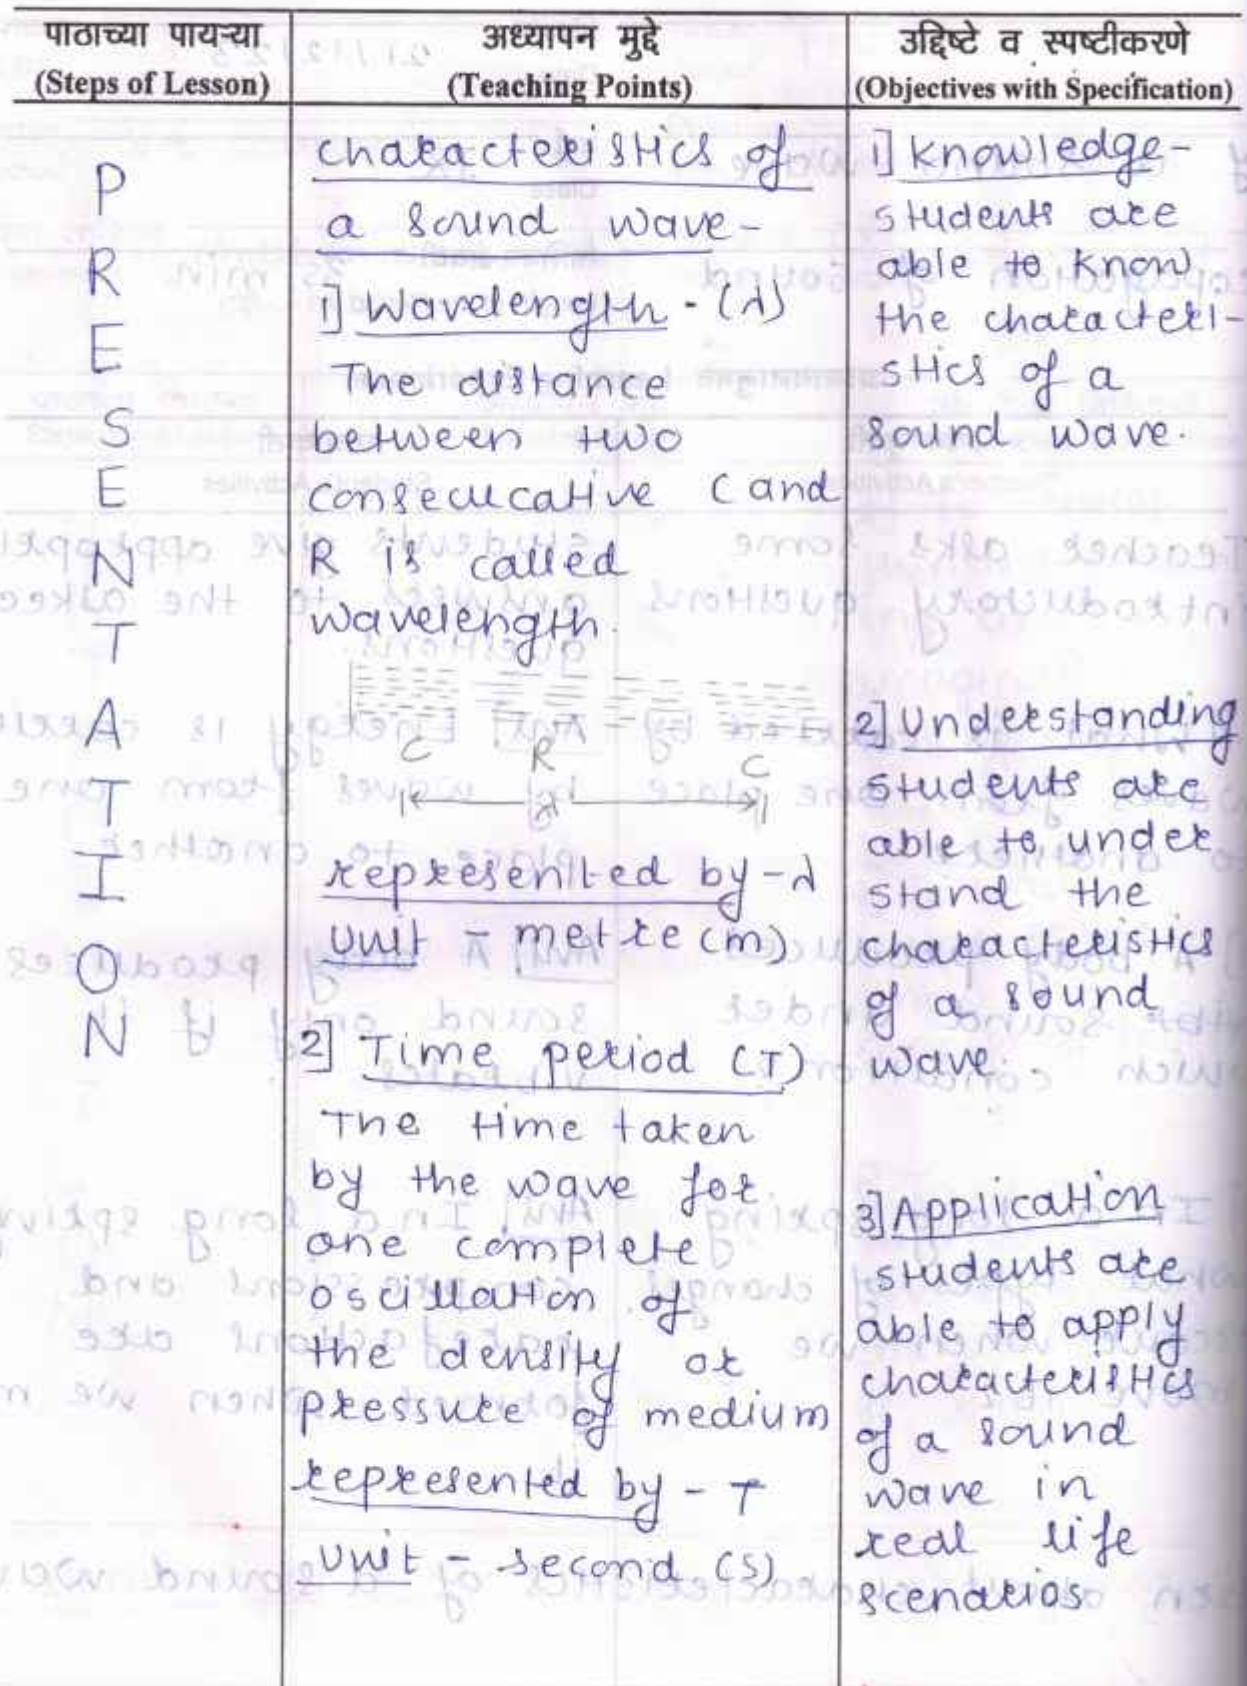 पाठाच्या पायऱ्या
(Steps of Lesson)
अध्यापन मुद्दे
(Teaching Points)
उद्दिष्टे व स्पष्टीकरणे
(Objectives with Specification)
PRESENTATION
characteristics of
a sound wave-
1] Wavelength - (λ)
The distance
between two
consecucative C and
R is called
wavelength.
C R C
λ
represenited by - λ
unit - metre (m)
2] Time period (T)
The time taken
by the wave for
one complete
oscillation of
the density or
pressure of medium
represented by - T
unit - second (s)
1] knowledge-
students are
able to know
the characteri-
stics of a
sound wave.
2] Understanding
students are
able to under
stand the
characteristics
of a sound
wave.
3] Application
students are
able to apply
characteristics
of a sound
wave in
real life
scenarios